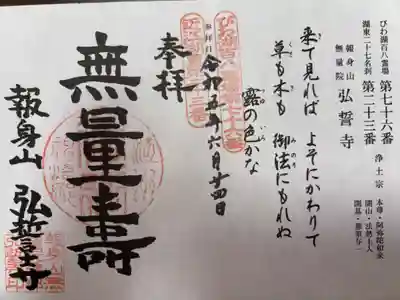 びわ湖百八霊場 第七十六番
湖東二十七名刹 第二十三番
報身山
無量院 弘誓寺
浄土宗
本尊・阿弥陀如来
来て見れば よそにかわりて
草も木も 御法にもれぬ
みのり
露の色かな
参拝日
令和五年六月十四日
奉拝
無量寿
報身山 弘誓寺